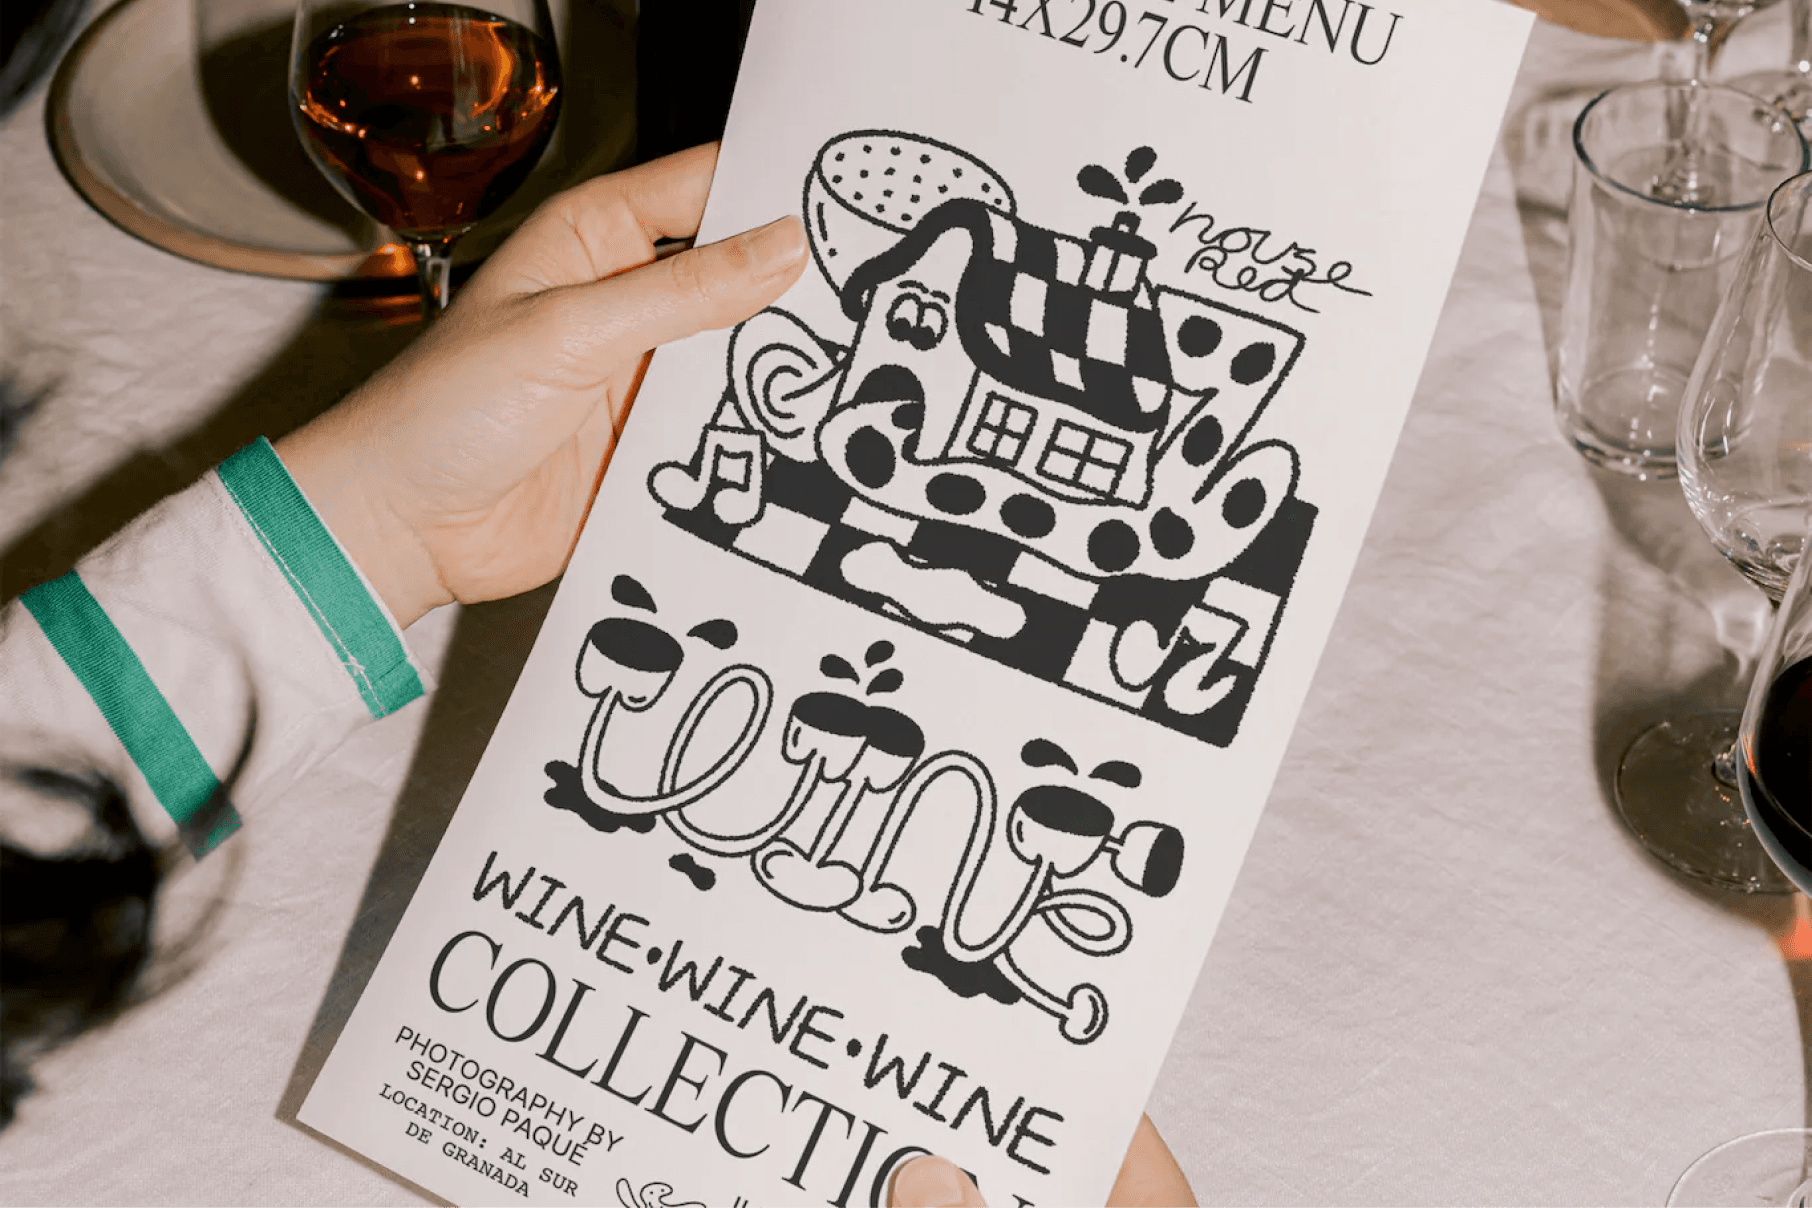 MENU
14X29.7CM
House
Red
wine
WINE•WINE•WINE
COLLECTION
PHOTOGRAPHY BY
SERGIO PAQUE
LOCATION: AL SUR
DE GRANADA